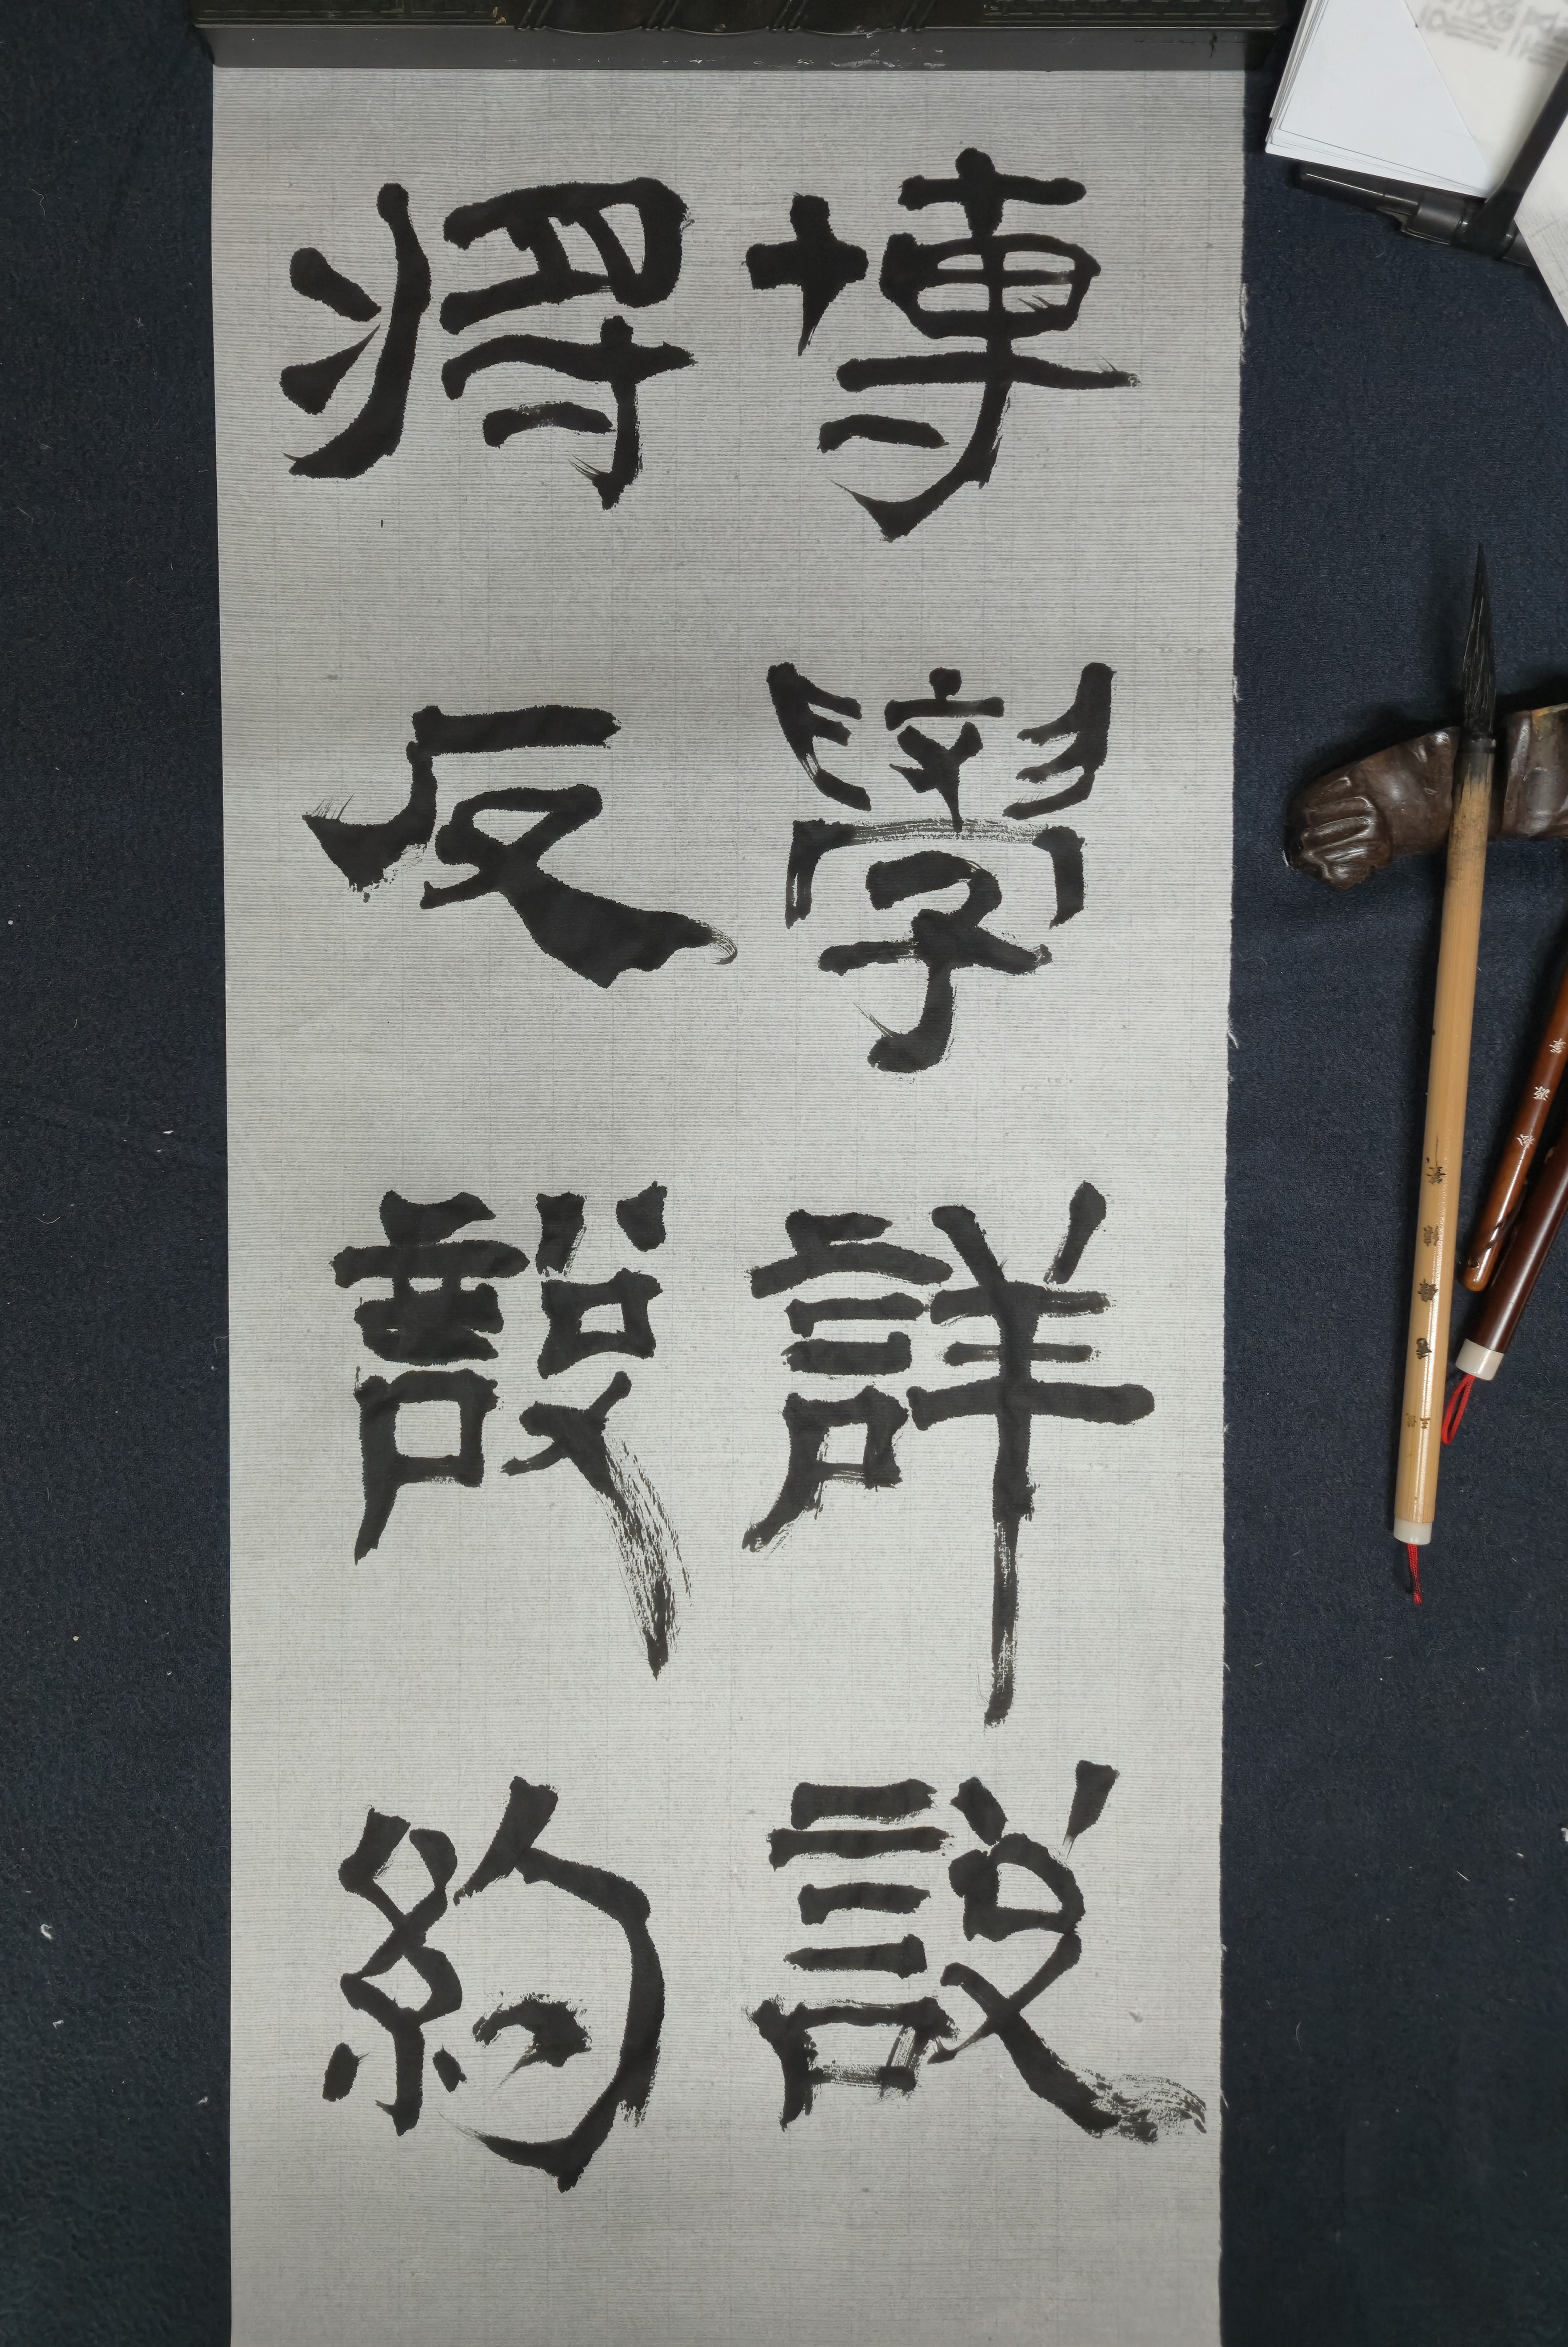 博學詳說
將反說約